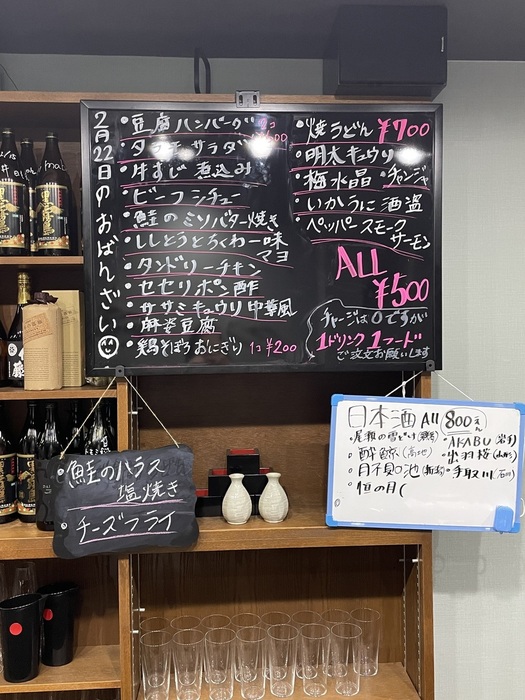 2月22日のおばんざい
・豆腐ハンバーグ
・タラモサラダ
・牛すじ煮込み
・ビーフシチュー
・鮭のミソバター焼き
・ししとうとちくわ一味マヨ
・タンドリーチキン
・セセリポン酢
・ササミキュウリ中華風
・麻婆豆腐
・鶏そぼろおにぎり 1コ ¥200
・焼うどん ¥700
・明太キュウリ
・梅水晶・チャンジャ
・いかうに酒盗
・ペッパースモークサーモン
ALL
¥500
チャージは0ですが
1ドリンク1フード
ご注文お願いします
・鮭のハラス
塩焼き
・チーズフライ
日本酒 All 800えん
・酔鯨(高知)
・AKABU(岩手)
・出羽桜(山形)
・手取川(石川)
・恒の月(